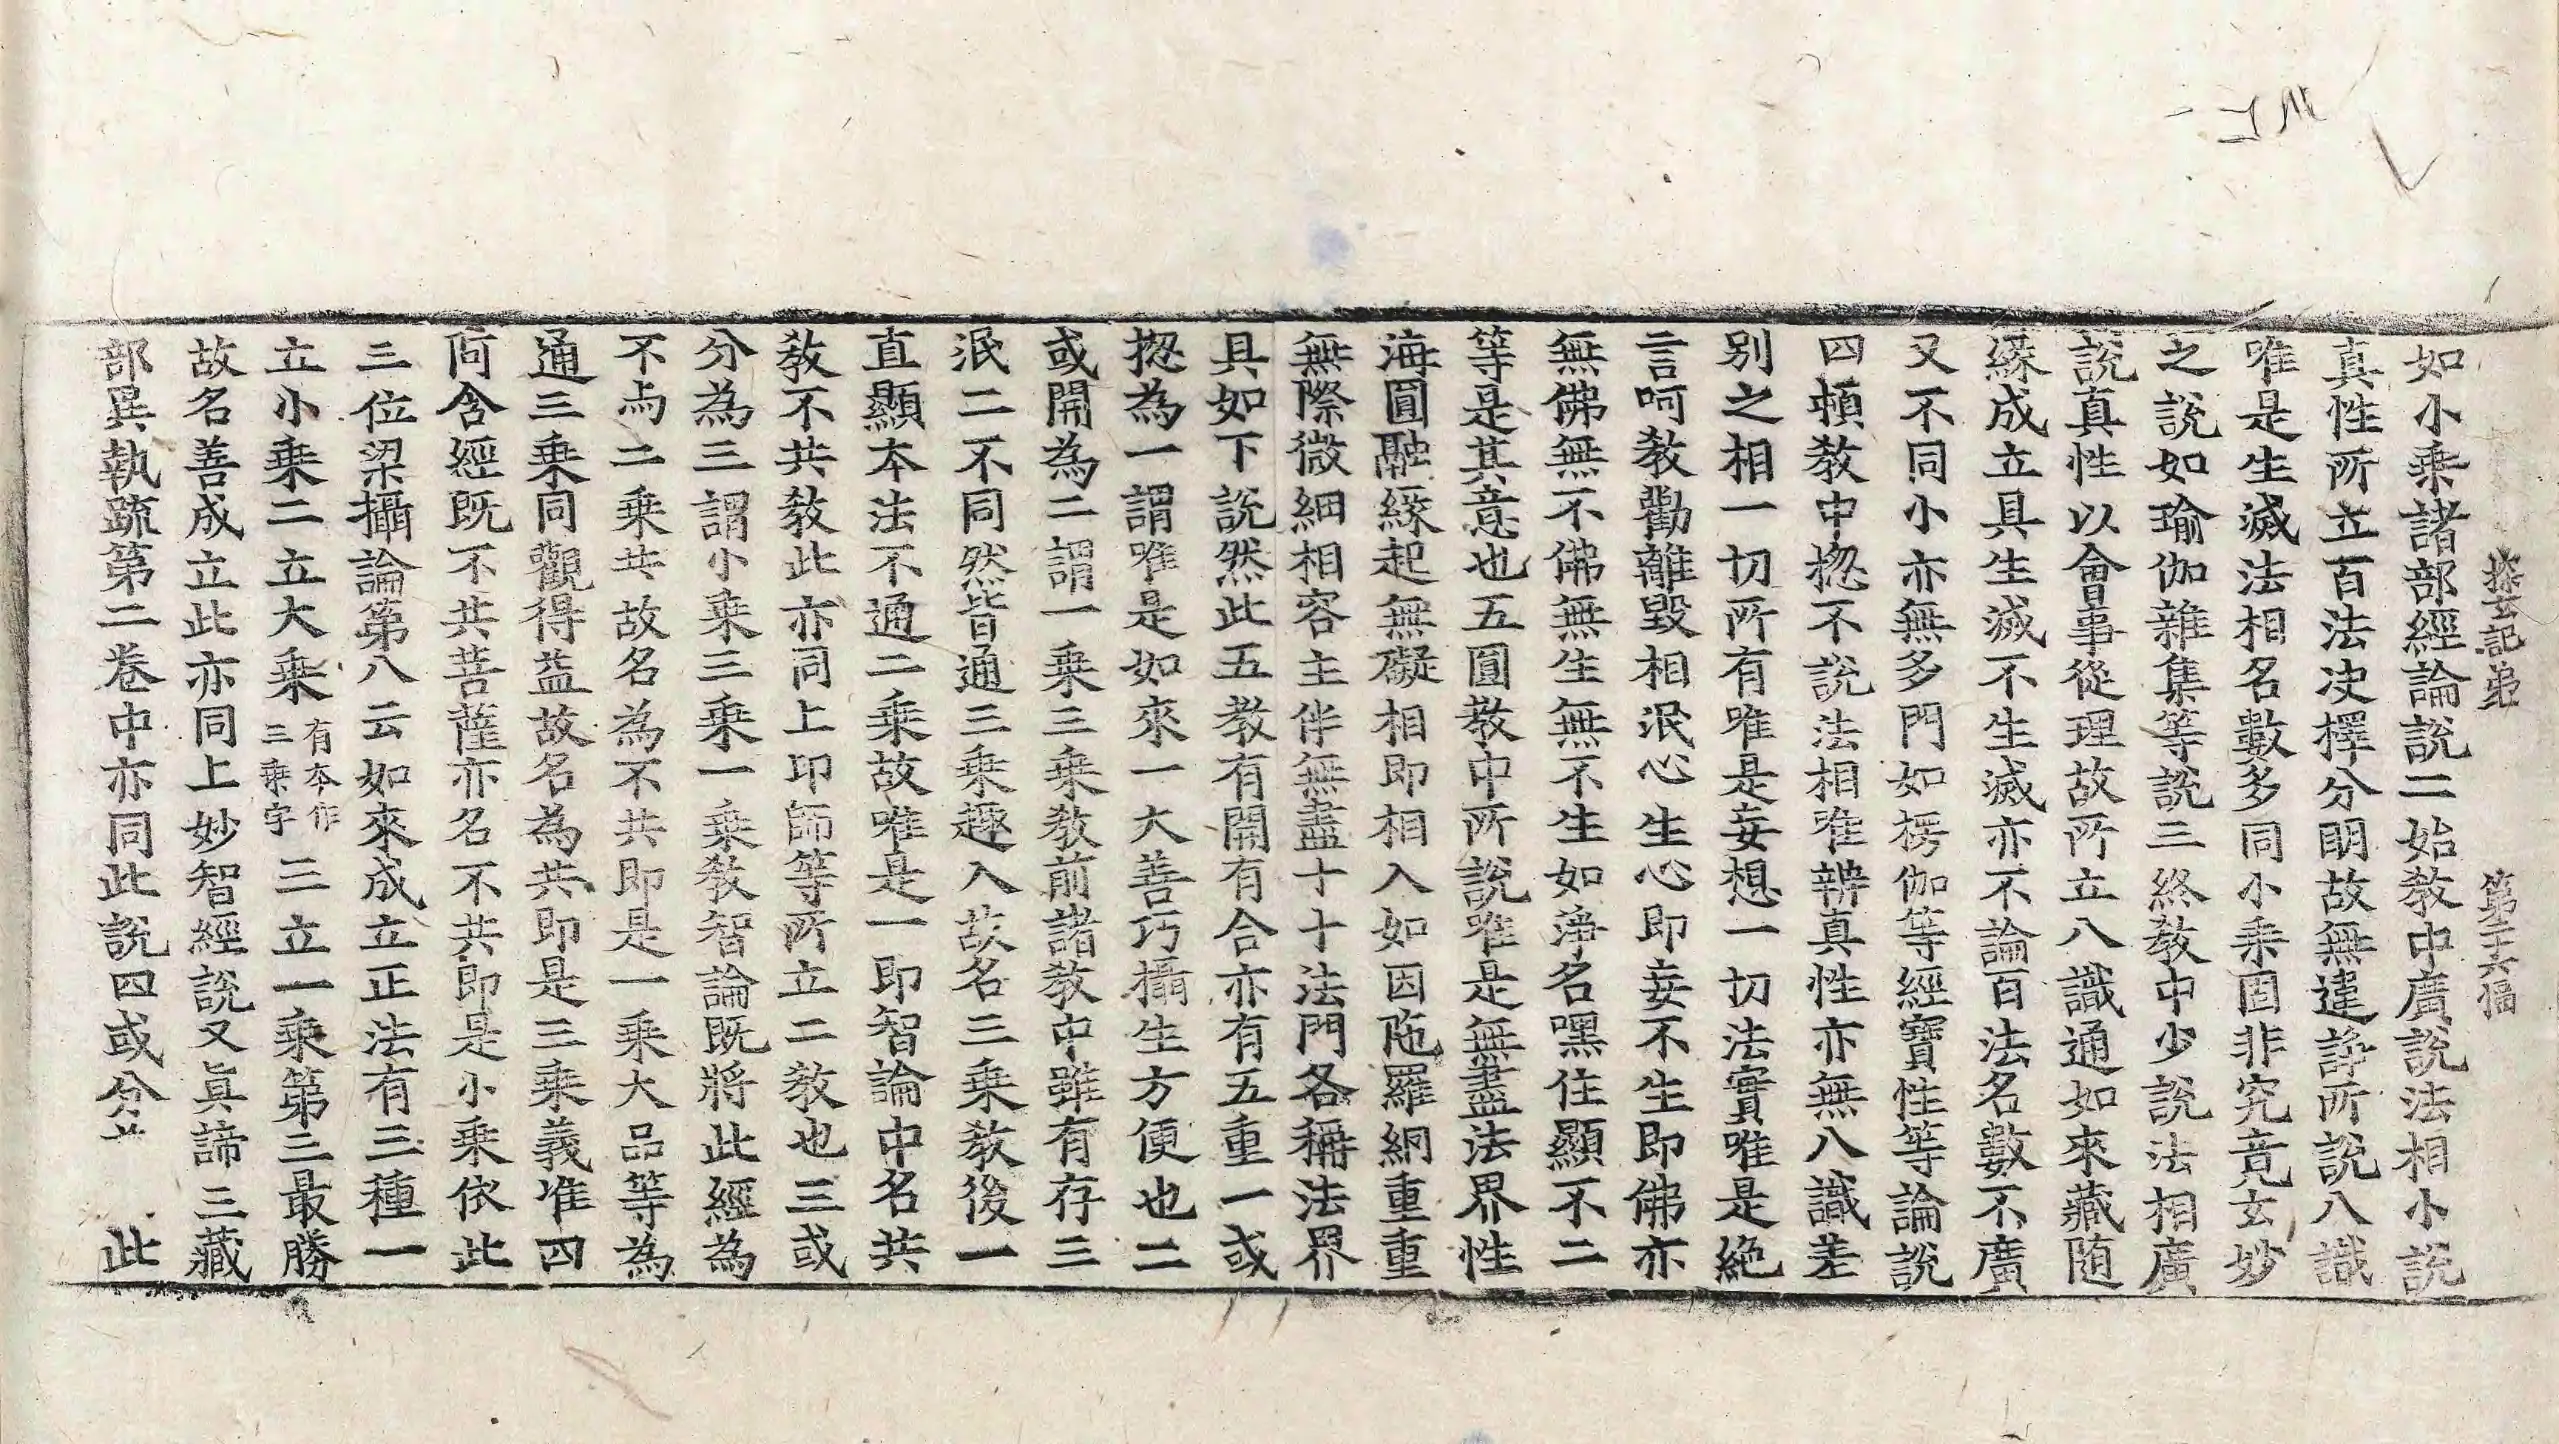 探玄記第　第二十六幅
如小乘諸部經論說二始教中廣說法相小說
真性所立百法決擇分明故無違諍所說八識
唯是生滅法相名數多同小乘固非究竟玄妙
之說如瑜伽雜集等說三終教中少說法相廣
說真性以會事從理故所立八識通如來藏隨
緣成立具生滅不生滅亦不論百法名數不廣
又不同小亦無多門如楞伽等經寶性等論說
四頓教中揔不說法相唯辨真性亦無八識差
別之相一切所有唯是妄想一切法實唯是絶
言呵教勸離毀相泯心生心即妄不生即佛亦
無佛無不佛無生無不生如淨名嘿住顯不二
等是其意也五圓教中所說唯是無盡法界性
海圓融緣起無礙相即相入如因陁羅網重重
無際微細相容主伴無盡十十法門各稱法界
具如下說然此五教有開有合亦有五重一或
揔為一謂唯是如來一大善巧攝生方便也二
或開為二謂一乘三乘教前諸教中雖有存三
泯二不同然皆通三乘趣入故名三乘教後一
直顯本法不通二乘故唯是一即智論中名共
教不共教此亦同上印師等所立二教也三或
分為三謂小乘三乘一乘教智論既將此經為
不与二乘共故名為不共即是一乘大品等為
通三乘同觀得益故名為共即是三乘義准四
阿含經既不共菩薩亦名不共即是小乘依此
三位梁攝論第八云如來成立正法有三種一
立小乘二立大乘有本作三乘字三立一乘第三最勝
故名善成立此亦同上妙智經說又眞諦三藏
部異執疏第二卷中亦同此說四或分　此